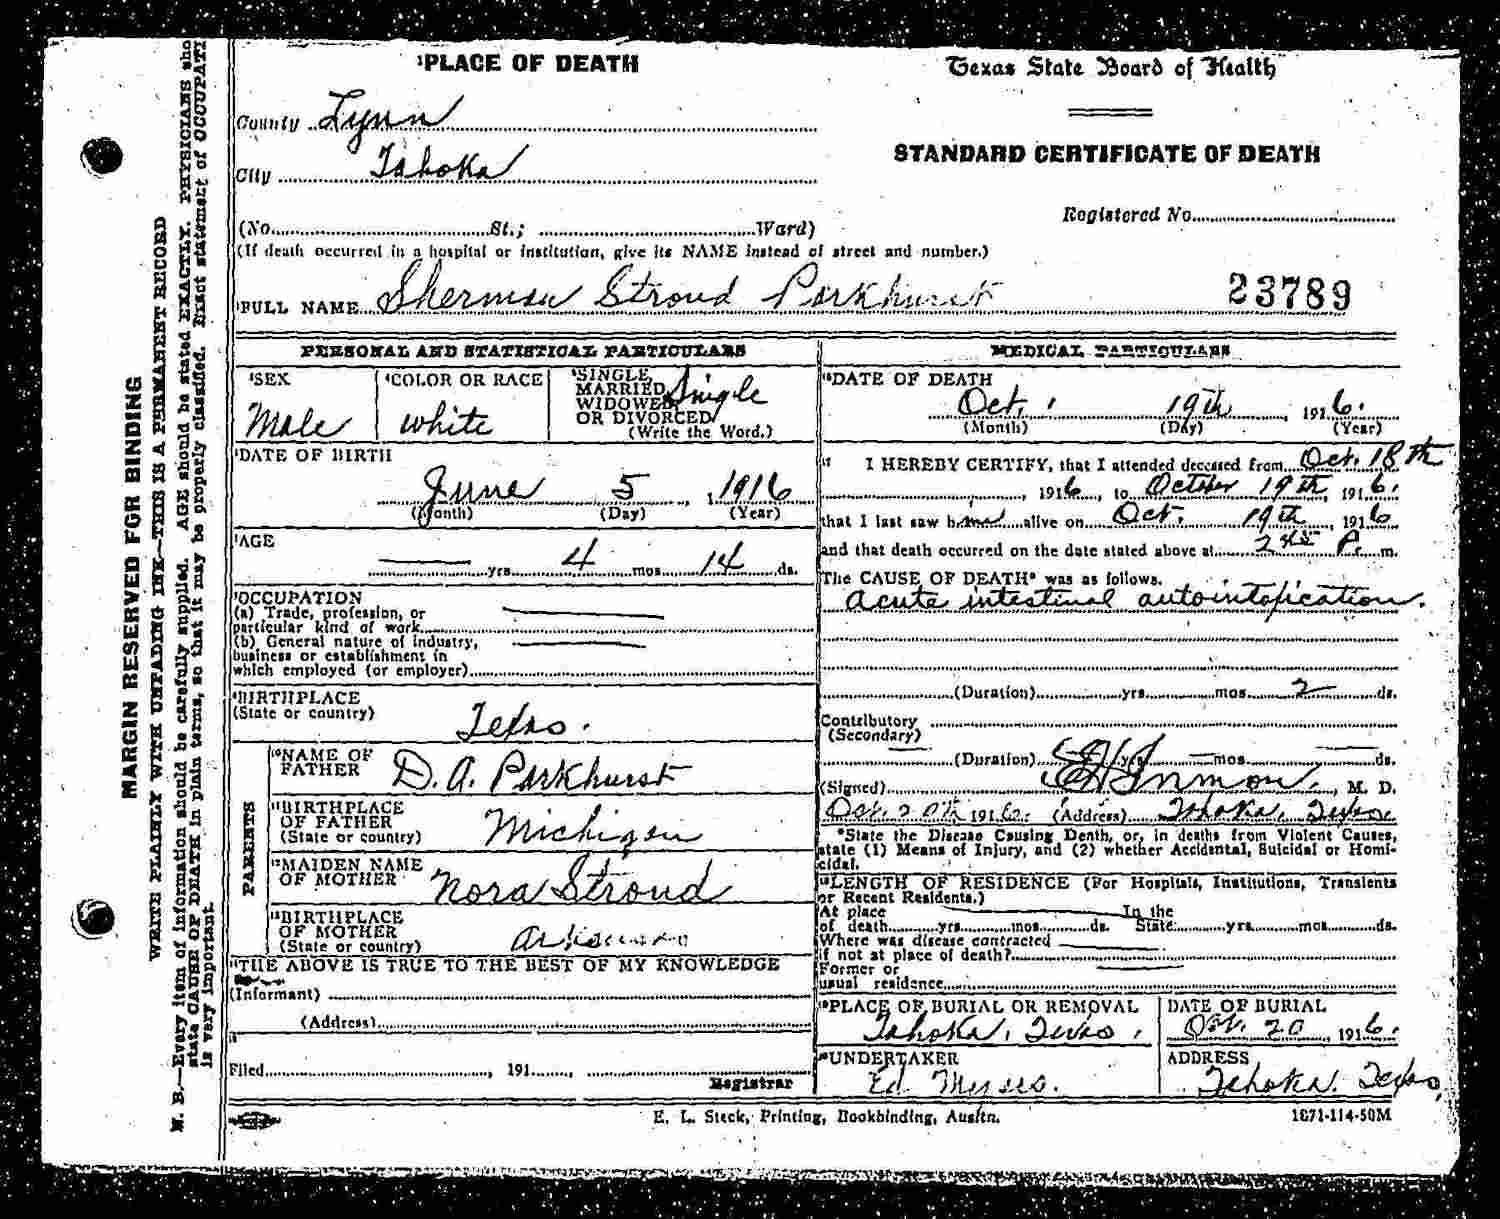 MARGIN RESERVED FOR BINDING
WRITE PLAINLY WITH UNFADING INK—THIS IS A PERMANENT RECORD
N. B.—Every item of information should be carefully supplied. AGE should be stated EXACTLY. PHYSICIANS sho
state CAUSE OF DEATH in plain terms, so that it may be properly classified. Exact statement of OCCUPATI
is very important.
¹PLACE OF DEATH
Texas State Board of Health
County Lynn
City Tahoka
STANDARD CERTIFICATE OF DEATH
Registered No.
(No. St.; Ward)
(If death occurred in a hospital or institution, give its NAME instead of street and number.)
²FULL NAME Sherman Stroud Parkhurst
23789
PERSONAL AND STATISTICAL PARTICULARS
³SEX
Male
⁴COLOR OR RACE
White
⁵SINGLE,
MARRIED
WIDOWED
OR DIVORCED
(Write the Word.)
Single
⁶DATE OF BIRTH
June 5, 1916
(Month) (Day) (Year)
⁷AGE
— yrs 4 mos 14 ds.
⁸OCCUPATION
(a) Trade, profession, or
particular kind of work
(b) General nature of industry,
business or establishment in
which employed (or employer)
⁹BIRTHPLACE
(State or country)
Texas.
PARENTS
¹⁰NAME OF
FATHER
D. A. Parkhurst
¹¹BIRTHPLACE
OF FATHER
(State or country)
Michigan
¹²MAIDEN NAME
OF MOTHER
Nora Stroud
¹³BIRTHPLACE
OF MOTHER
(State or country)
Arkansas
¹⁴THE ABOVE IS TRUE TO THE BEST OF MY KNOWLEDGE
(Informant)
(Address)
Filed , 191 ,
Registrar
MEDICAL PARTICULARS
¹⁶DATE OF DEATH
Oct. 19th 1916.
(Month) (Day) (Year)
¹⁷ I HEREBY CERTIFY, that I attended deceased from Oct. 18th
, 1916, to October 19th, 1916.
that I last saw him alive on Oct. 19th, 1916
and that death occurred on the date stated above at P. m.
The CAUSE OF DEATH* was as follows.
acute intestinal autointoxication.
(Duration) yrs. mos 2 ds.
Contributory
(Secondary)
(Duration) yrs — mos. — ds.
(Signed) Inmon, M. D.
Oct. 20th 1916. (Address) Tahoka, Texas
*State the Disease Causing Death, or, in deaths from Violent Causes,
state (1) Means of Injury, and (2) whether Accidental, Suicidal or Homi-
cidal.
¹⁸LENGTH OF RESIDENCE (For Hospitals, Institutions, Transients
or Recent Residents.)
At place In the
of death yrs. mos. ds. State yrs. mos. ds.
Where was disease contracted
if not at place of death?
Former or
usual residence
¹⁹PLACE OF BURIAL OR REMOVAL
Tahoka, Texas.
DATE OF BURIAL
Oct. 20, 1916.
²⁰UNDERTAKER
Ed Myers.
ADDRESS
Tahoka, Texas
E. L. Steck, Printing, Bookbinding, Austin.
1871-114-50M